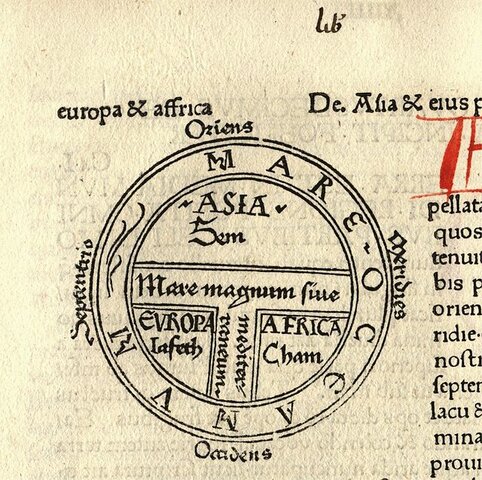 lib
europa & affrica
De. Asia & eius p
Oriens
MARE OCCEANUM
ASIA
Sem
Septentrio
Meridies
Mare magnum siue
mediterreneum
EVROPA
Iafeth
AFRICA
Cham
Occidens
pellata
quos
tenuit
bis p
orien
ridie.
nostr
septen
lacu &
mina
proui